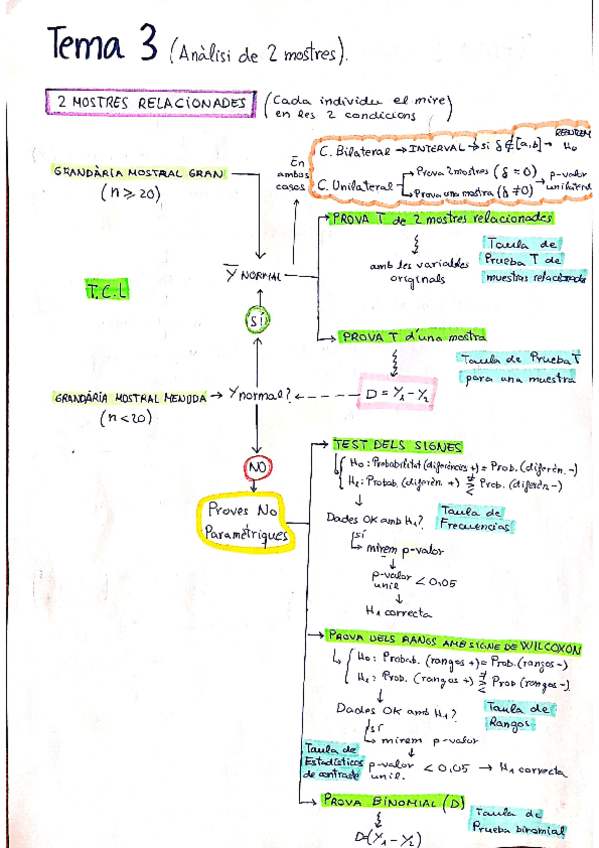 Tema 3 (Anàlisi de 2 mostres).
2 MOSTRES RELACIONADES (Cada individu el mire)
en les 2 condicions
REBUTGEM
C. Bilateral → INTERVAL → si δ ∉ [a,b] → H₀
En
ambos
casos
C. Unilateral → Prova 2 mostres (δ = 0) → p-valor
→ Prova una mostra (δ ≠ 0) unilateral
GRANDÀRIA MOSTRAL GRAN
(n ≥ 20)
PROVA T de 2 mostres relacionades
amb les variables
originals
Taula de
Prueba T de
muestras relacionadas
Y NORMAL
T.C.L
SÍ
PROVA T d'una mostra
Taula de Prueba T
para una muestra
GRANDÀRIA MOSTRAL MENUDA → Y normal?
(n < 20)
D = Y₁ - Y₂
NO
Proves No
Paramètriques
TEST DELS SIGNES
H₀: Probabilitat (diferències +) = Prob. (diferèn. -)
H₁: Probab. (diferèn. +) ≠ > < Prob. (diferèn. -)
Dades OK amb H₁?
Taula de
Frecuencias
sí
mirem p-valor
p-valor < 0,05
unil
H₁ correcta
PROVA DELS RANGS AMB SIGNE DE WILCOXON
H₀: Probab. (rangos +) = Prob. (rangos -)
H₁: Prob. (rangos +) ≠ > < Prob (rangos -)
Dades OK amb H₁?
Taula de
Rangos
sí
mirem p-valor
Taula de
Estadísticos
de contraste
p-valor < 0,05 → H₁ correcta
unil.
PROVA BINOMIAL (D)
D=(Y₁ - Y₂)
Taula de
Prueba binomial